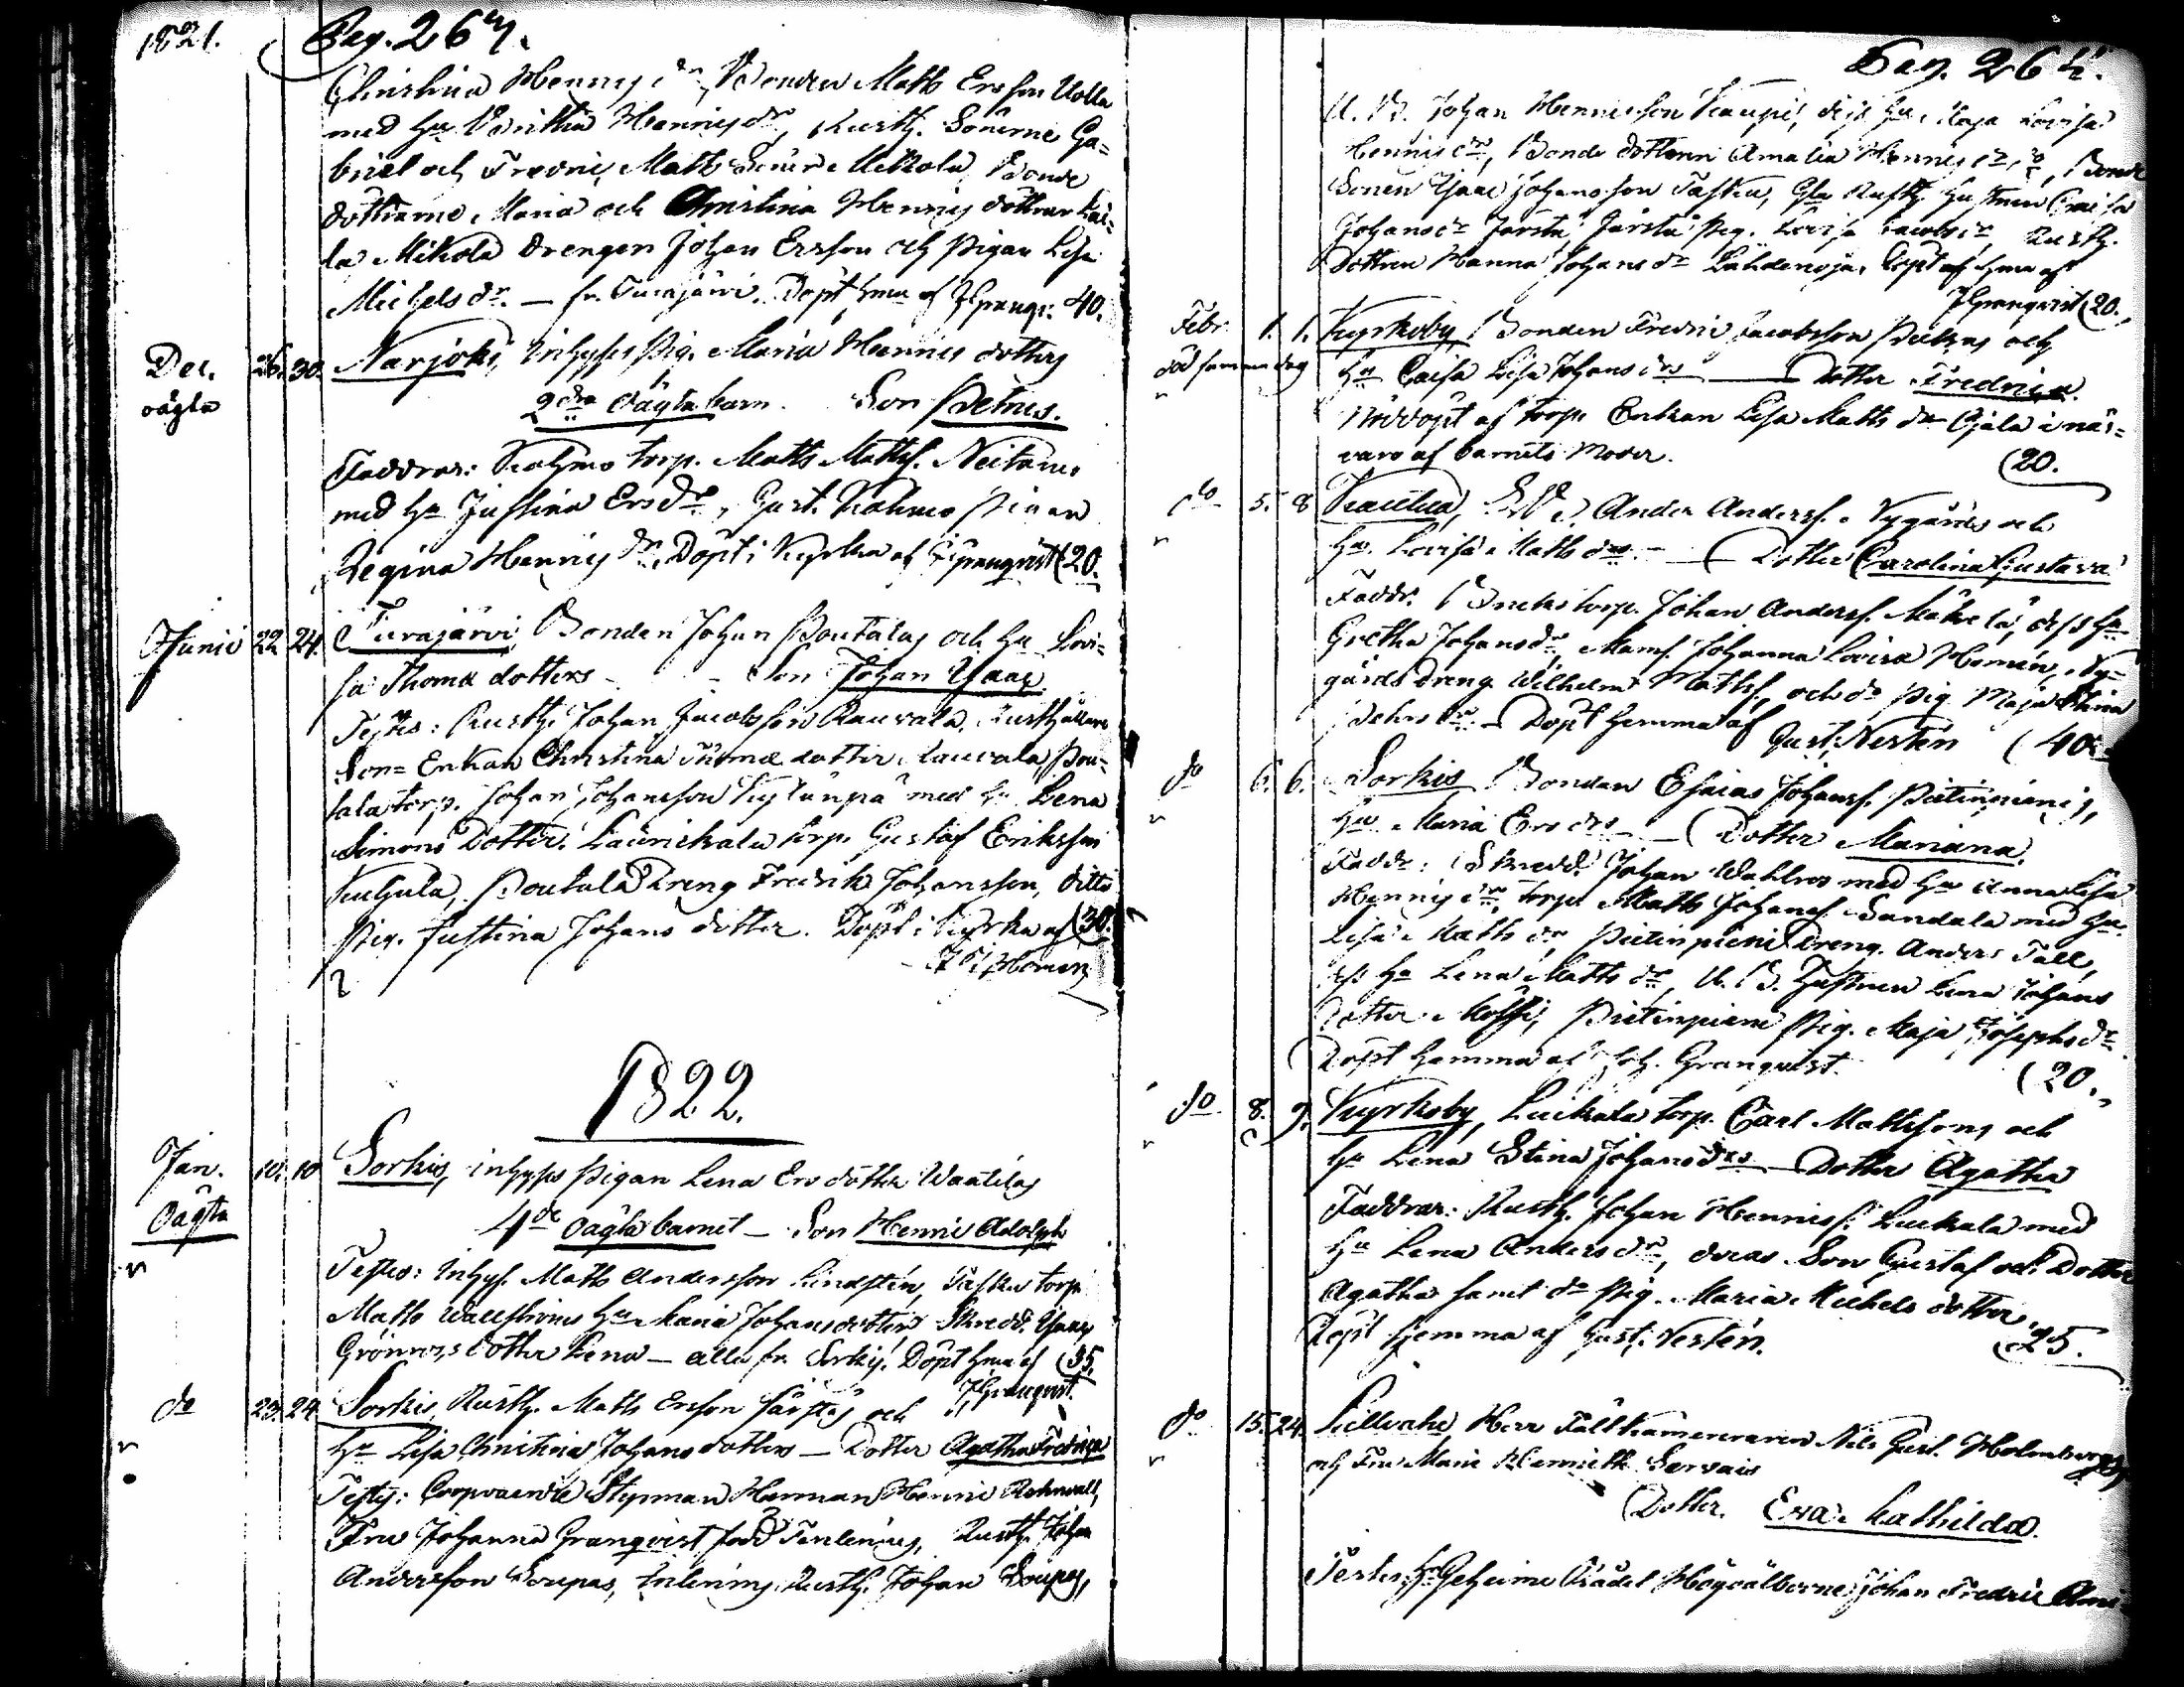 1821. Pag. 267.
Christina Hennrics dr, Bonden Matts Ersson Uolla
med Hu Britha Henrics dr, Rusth. Sönerne Ga=
briel och Fredric Matts Söner Mikola, Bonde
döttrarne Maria och Christina Henrics döttrar
la Mikola drengen Johan Ersson och Pigan Lisa
Michels dr. — fr. Turajärvi. Döpt hma af JGranqv. 40.
Dec. 26. 30. Narjoki, inhyses Pig. Maria Henrics dotters
oägta 2dra oägta barn. Son Petrus.
Faddrar: Kolhmo torp. Matts Mattss. Neitamo
med Hu Justina Ersdr, Gust. Kolhmo Pigan
Regina Henrics dr, Döpt i Kyrkan af JGranqvist (20.
Junii 22 24. Turajärvi, Bonden Johan Poutalas och Hu Lovi=
sa Thomæ dotters — Son Johan Isaac
Testes: Rusth. Johan Jacobsson Rauvola, Rusthållare
Son= Enkan Christina Thomæ dotter Rauvola, Pou=
tala torp. Johan Johansson Kylänpä med Hu Lena
Simons Dotter, torp. Gustaf Eriksson
Kuhula, Poutala Dreng Fredrik Johansson, ditto
Pig. Justina Johans dotter. Döpt i Kyrkan af (30.
Homen
1822.
Jan. 10. 10 Sorkis, inhyses Pigan Lena Ers dotter Waatilas
Oägta 4de oägta barnet — Son Henric Adolph
Testes: Inhys. Matts Andersson Lindstén, torp.
Matts Hu Maria Johansdotter Skredd. Isaac
Grönroos dotter Lena — alla fr. Sorkis. Döpt hma af (35.
JGranqvist.
do 23. 24. Sorkis, Rusth. Matts Ersson Järstäs och
Hu Lisa Christina Johans dotters — Dotter Agatha Fredrica
Testes: Coopvaerdie Styrman Herman Henric
Fru Johanna Granqvist född Tenlenius, Rusth. Johan
Andersson Soupas, Rusth. Johan Soupas,
Pag. 264.
U. B. Johan Henricsson Kaupi, dess Hu Maja Lovisa
Henrics dr, Bonde dottern Amalia Henrics dr, Bonde
Sonen Isaac Johansson Tasku, Gla Rusth. Hustrun Caisa
Johans dr Järstä, Järstä Pig. Lovisa Jacobs dr, Rusth.
Dottren Hanna Johans dr Lähdenoja, Döpt af hma af
JGranqvist (20.
Febr. 1. 1. Kyrkoby, Bonden Fredric Jacobsson och
död samma dag Hu Caisa Lisa Johans drs — Dotter Fredrica.
Nöddöpt af torp. Enkan Lisa Matts dr i när=
varo af barnets Moder. (20.
do 5. 8 Kautua, Anders Anderss. Nygårds och
Hu Lovisa Matts drs — Dotter Carolina Gustava
Faddr. Bruks torp. Johan Anderss. Mäkelä, dess Hu
Gretha Johansdr, Mams. Johanna Lovisa Homén, Ny=
gårds dreng Wilhelm Mattss, och do Pig Maja Stina
Pehrs dr. — Döpt hemma af Gust. Nestén (40.
do 6. 6. Sorkis Bonden Esaias Johanss. Pietinpienis,
Hu Maria Ers drs — Dotter Mariana.
Faddr: Skredd. Johan Wahlroos med Hu Anna Lisa
Henrics dr, torp. Matts Johanss. Sandala med Hu
Lisa Matts dr, Pietinpieni Dreng Anders Fäll,
dess Hu Lena Matts dr, U. B. Hustrun Lena Johans
dotter, Pietinpieni Pig. Maja Josephs dr
Döpt hemma af Joh. Granqvist. (20.
do 8. 9. Kyrkoby, Luckala torp. Carl Mattssons och
Hu Lena Stina Johans drs — Dotter Agatha
Faddrar: Rusth. Johan Henricss. Luckala med
Hu Lena Anders dr, deras Son Gustaf och Dotter
Agatha samt do Pig. Maria Michels dotter.
Döpt hemma af Gust. Nestén. (25.
do 15. 24 Herr Fältkamereraren Nils Gust. Holmbergs
och Fru Maria Henrietta Gervais
Dotter. Eva Mathilda.
Testes: Hr Geheime Rådet Högvälborne Johan Fredric